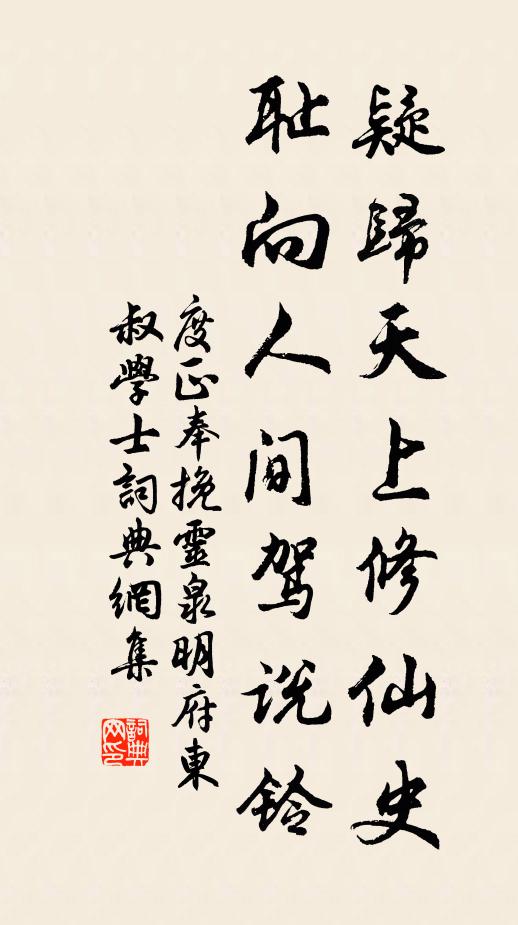 疑歸天上修仙史
耻向人间駕说鈴
度正奉挽靈泉明府東
叔學士詞典網集
詞典
网印